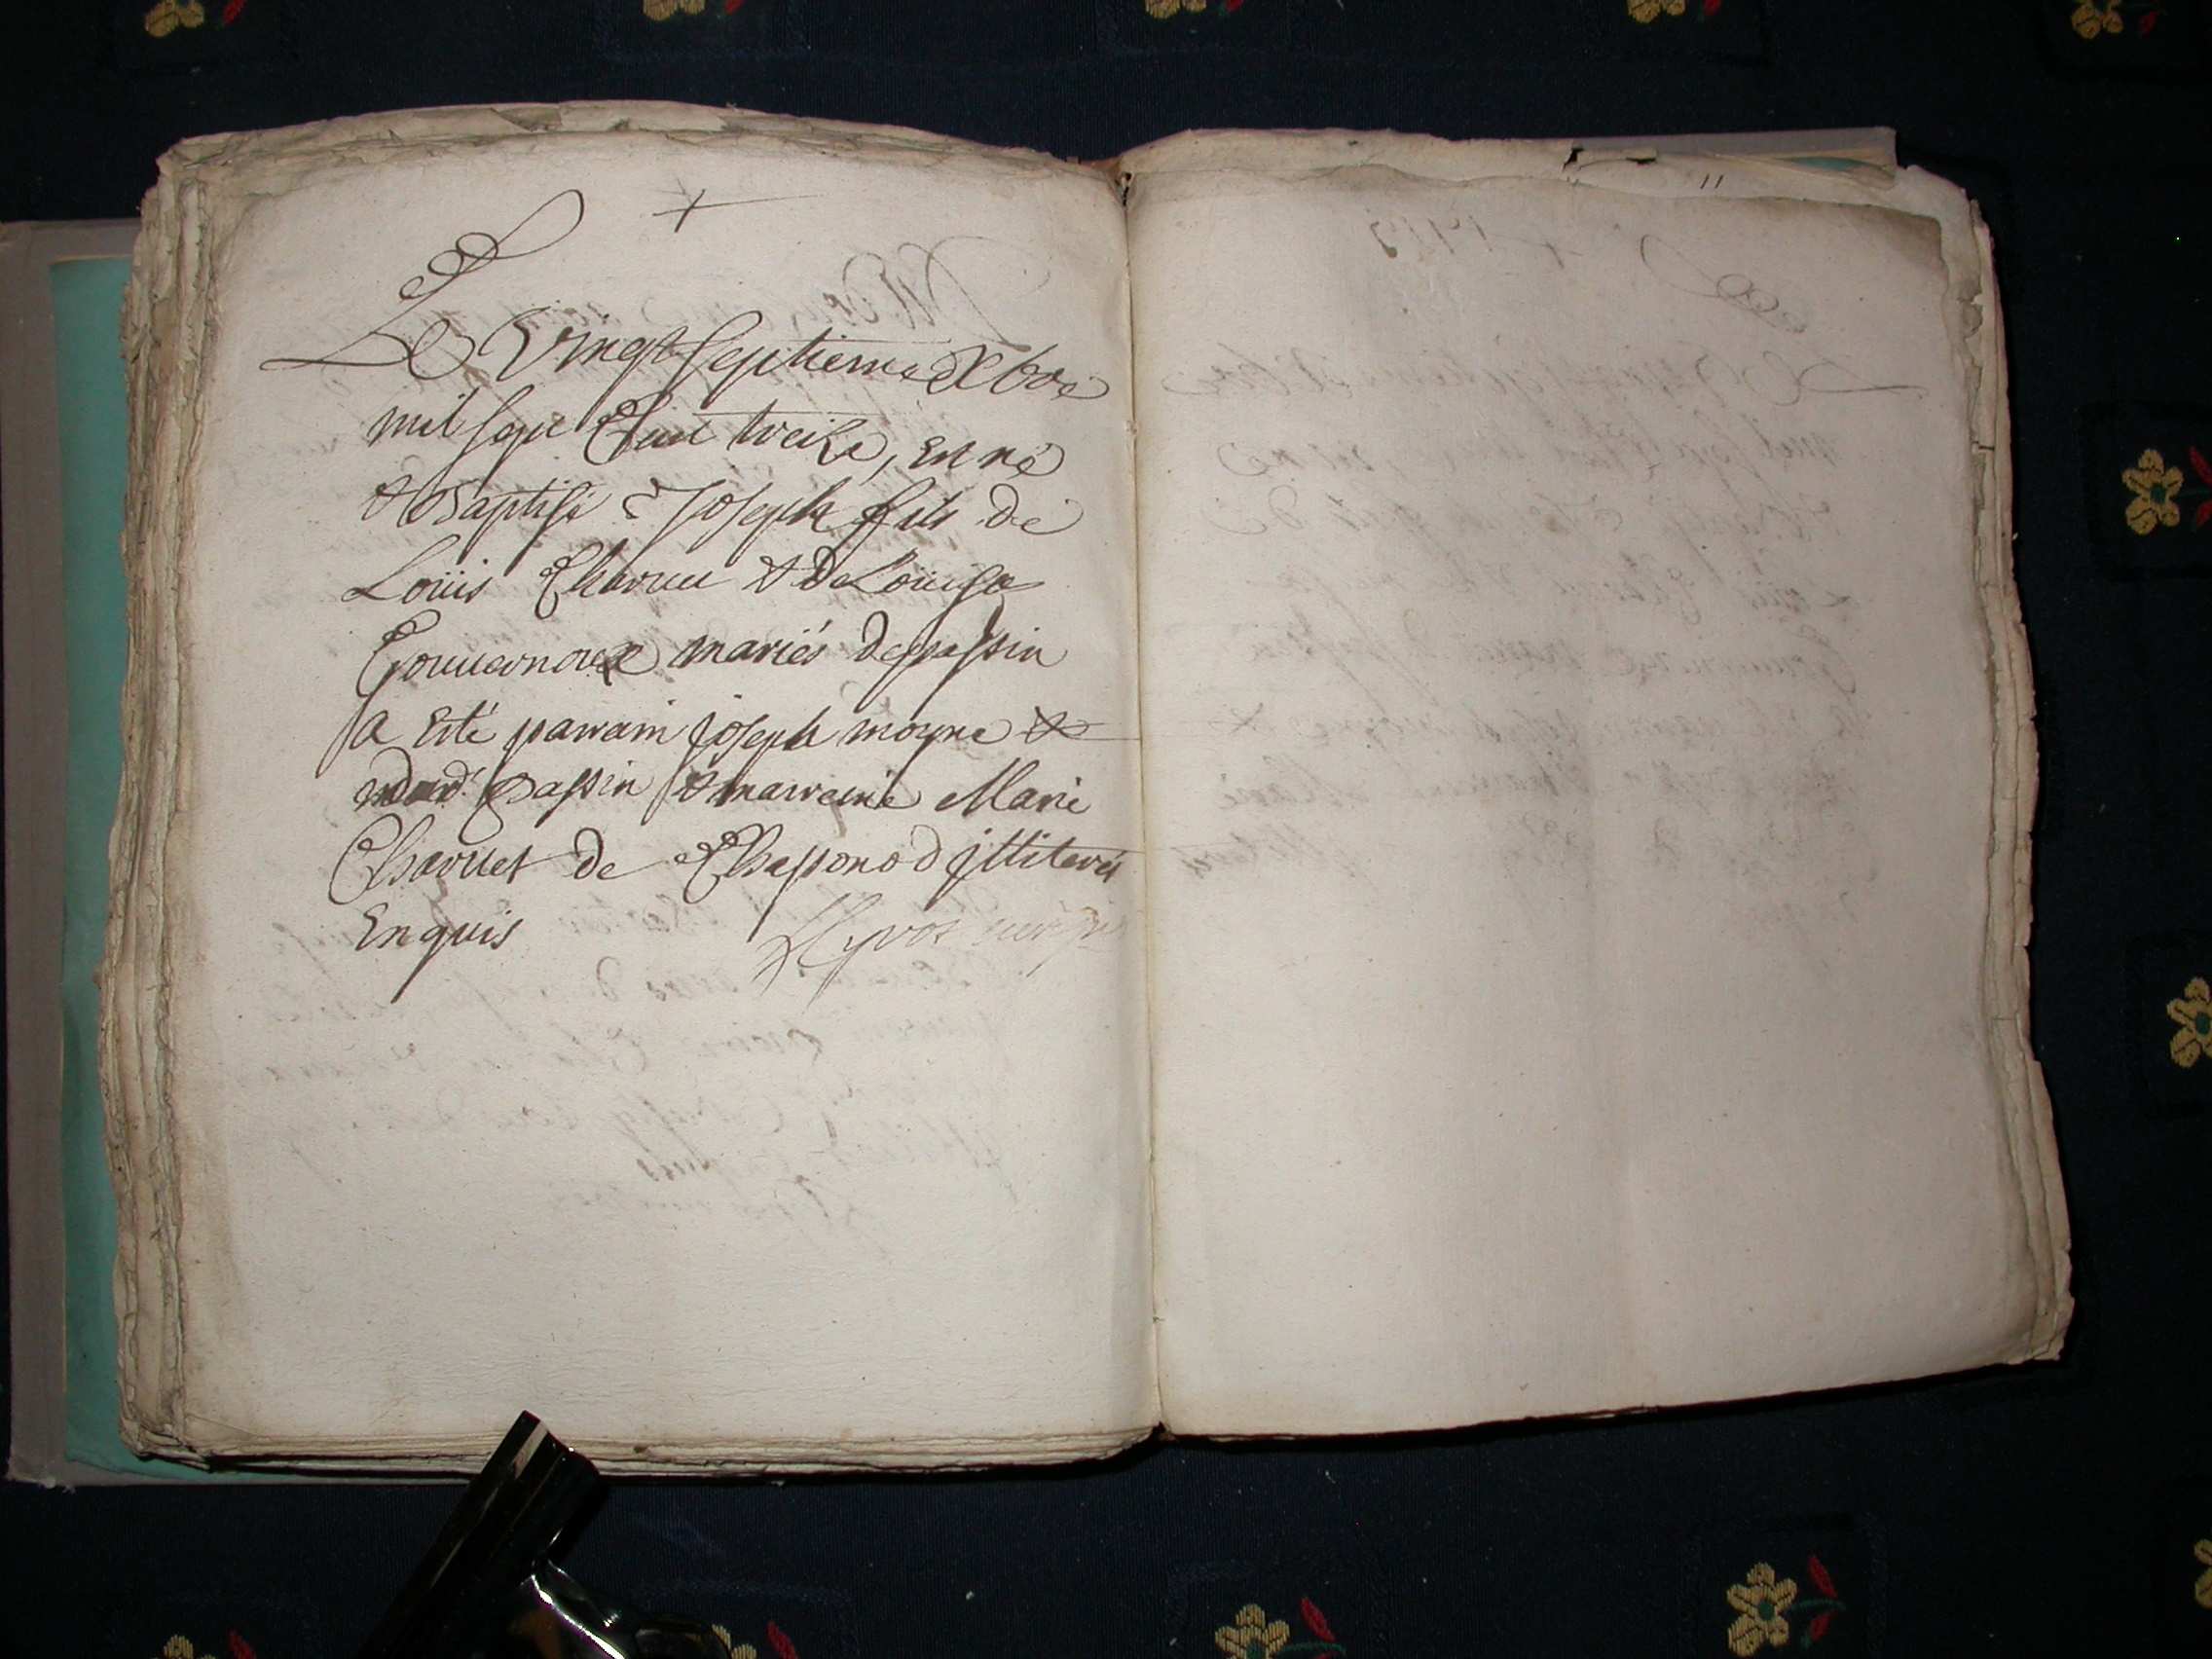 Le Vingt septieme Xbre
mil sept Cent treize, est né
& Baptisé Joseph fils de
Loüis Charuet & de Loüise
Gouuernoux mariés de passin
a Esté parrain Joseph moyne de
Passin & marreine Marie
Charuet de Chassonod illiterés
Enquis
11